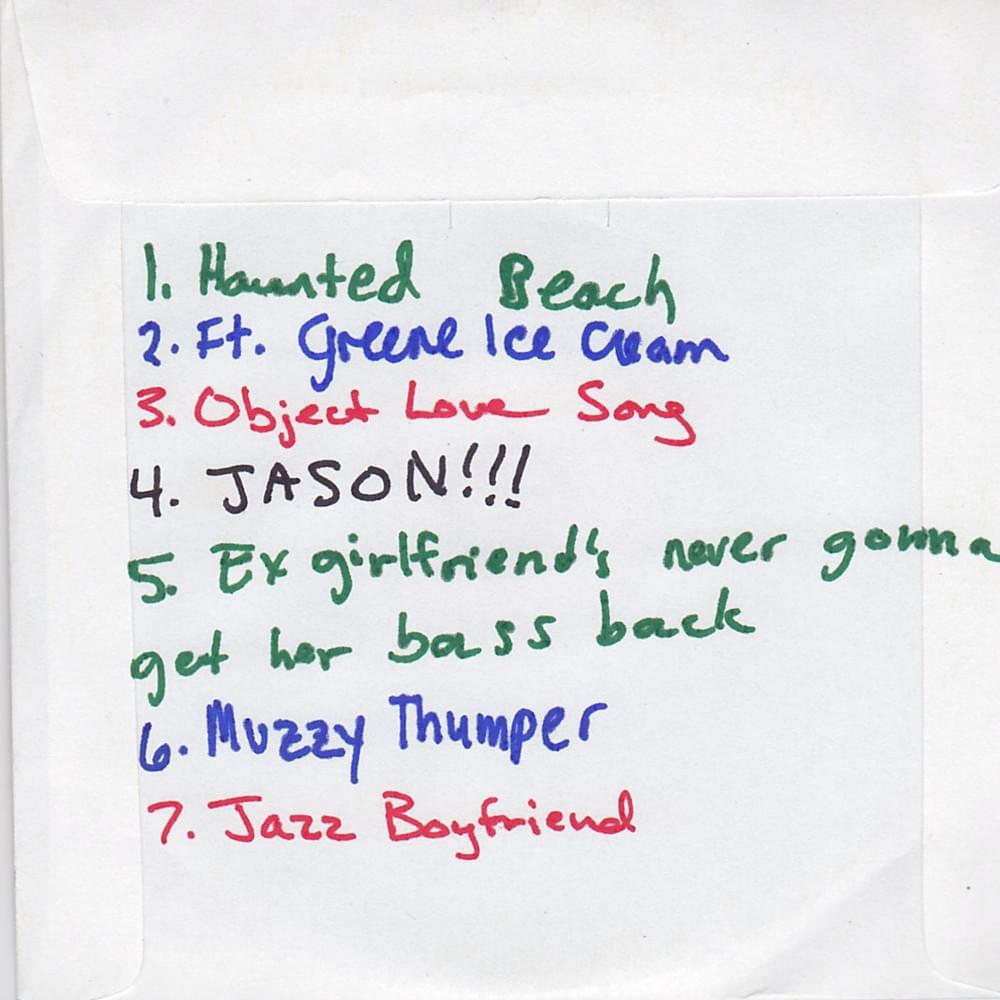 1. Haunted Beach
2. Ft. Greene Ice Cream
3. Object Love Song
4. JASON!!!
5. Ex girlfriend's never gonna
get her bass back
6. Muzzy Thumper
7. Jazz Boyfriend